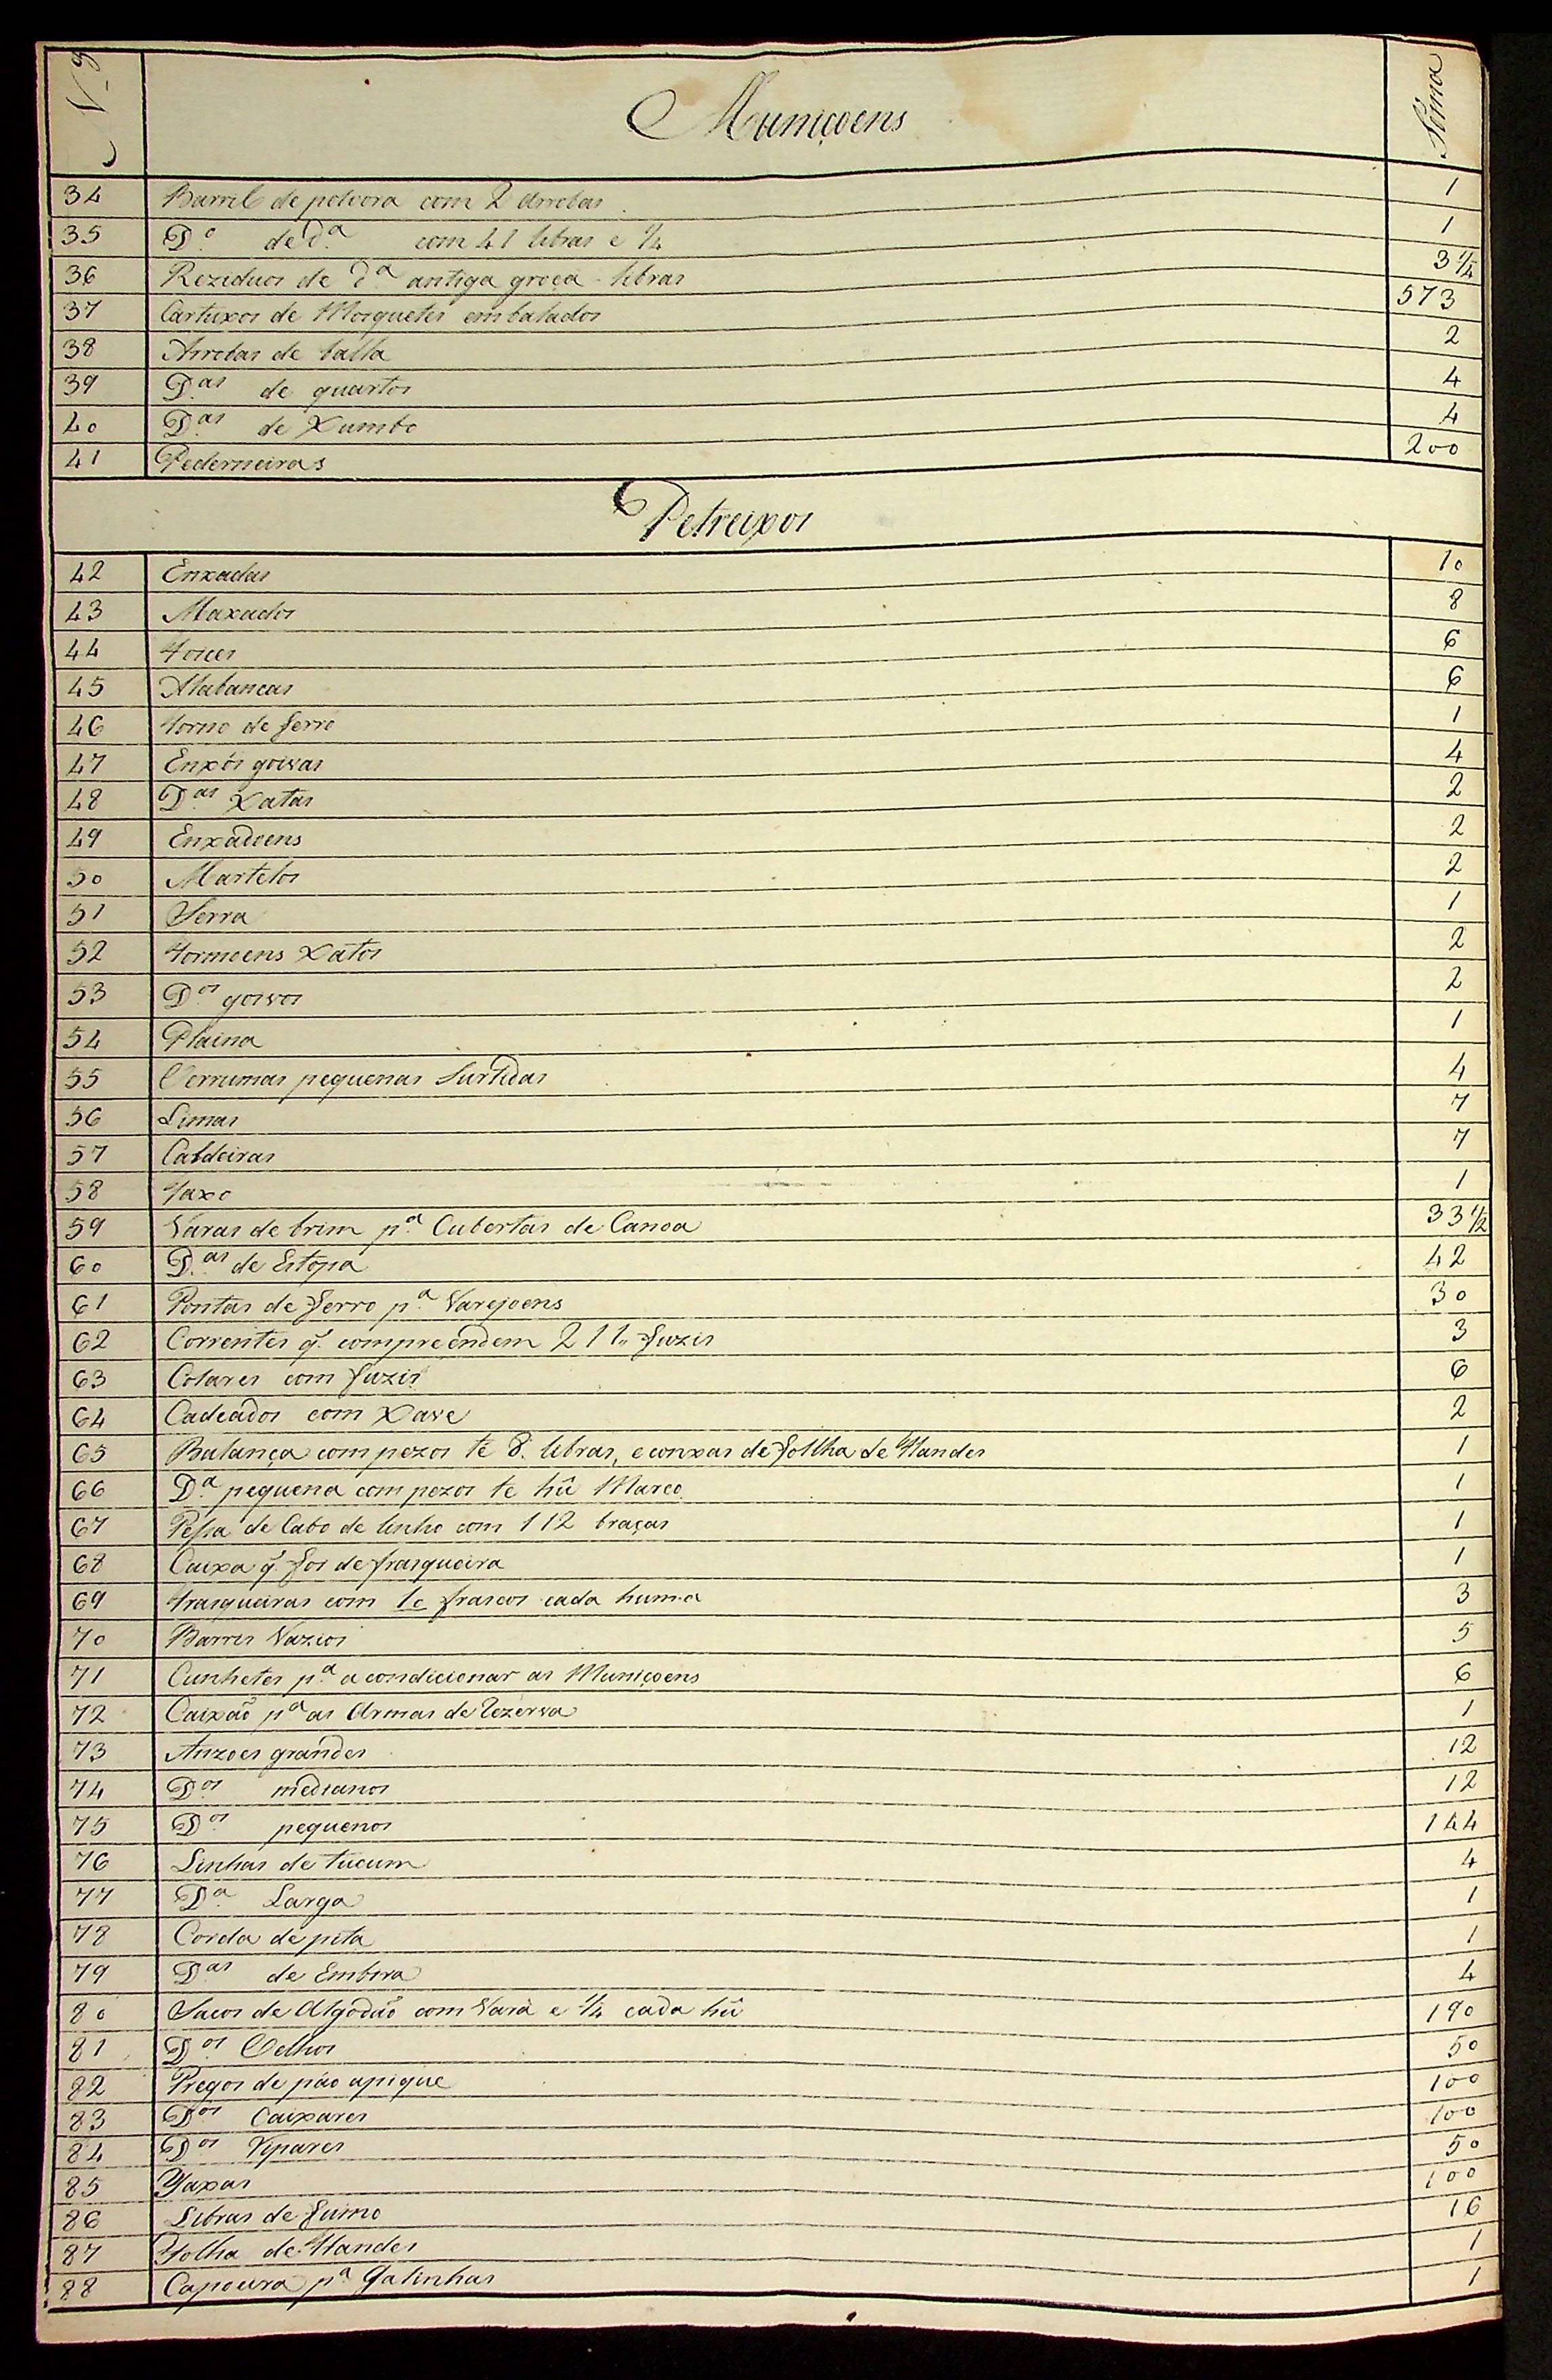 N.os Muniçoens Soma
34 Barril de polvora com 2 Arrobas 1
35 D.o de d.a com 41 libras e 1/4 1
36 Reziduos de d.a antiga groça - libras 3 1/4
37 Cartuxos de Mosquetes embalados 573
38 Arrobas de balla 2
39 D.as de quartos 4
40 D.as de Xumbo 4
41 Pederneiras 200
Petreixos
42 Enxadas 10
43 Maxados 8
44 Foices 6
45 Alabancas 6
46 Torno de ferro 1
47 Enxós goivas 4
48 D.as Xatas 2
49 Enxadoens 2
50 Martelos 2
51 Serra 1
52 Formoens Xatos 2
53 D.os goivos 2
54 Plaina 1
55 Verrumas pequenas Surtidas 4
56 Limas 7
57 Caldeiras 7
58 Taxo 1
59 Varas de brim p.a Cubertas de Canoa 33 1/2
60 D.as de Estopa 42
61 Pontas de ferro p.a Varejoens 30
62 Correntes q̃. compreendem 211,, fuzis 3
63 Colares com fuzis 6
64 Cadeados com Xave 2
65 Balança com pezos té 8. libras, e conxas de follha de Flandes 1
66 D.a pequena com pezos te hũ Marco 1
67 Pessa de Cabo de linho com 112 braças 1
68 Caixa q̃. foi de frasqueira 1
69 Frasqueiras com 10 frascos cada huma 3
70 Barris Vazios 5
71 Cunhetes p.a acondicionar as Muniçoens 6
72 Caixão p.a as Armas de Rezerva 1
73 Anzoes grandes 12
74 D.os medianos 12
75 D.os pequenos 144
76 Linhas de tucum 4
77 D.a Larga 1
78 Corda de pita 1
79 D.as de Embira 4
80 Sacos de Algodão com Vara e 1/4 cada hũ 190
81 D.os Velhos 50
82 Pregos de páo apique 100
83 D.os Caixares 100
84 D.os Ripares 50
85 Taxas 100
86 Libras de fumo 16
87 Folha de Flandes 1
88 Capoeira p.a Galinhas 1